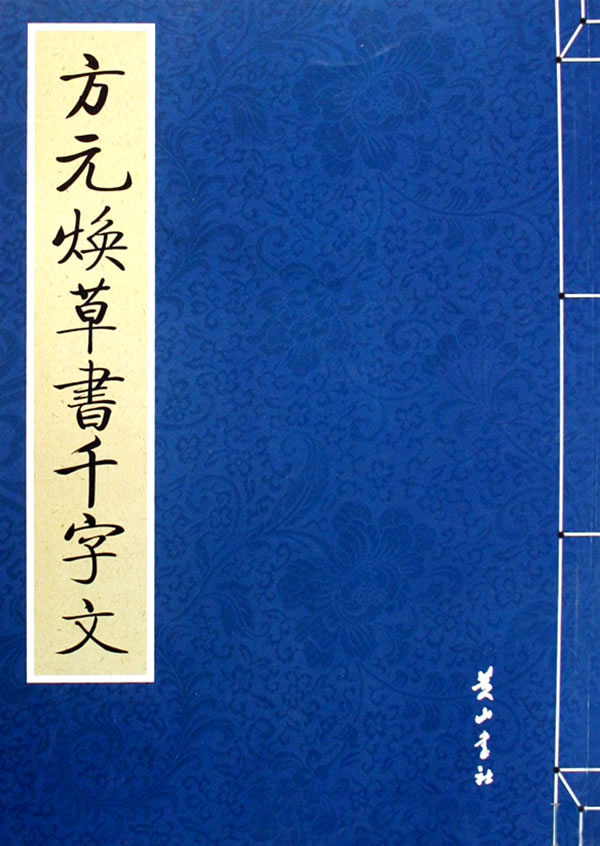 方元煥草書千字文
黄山書社